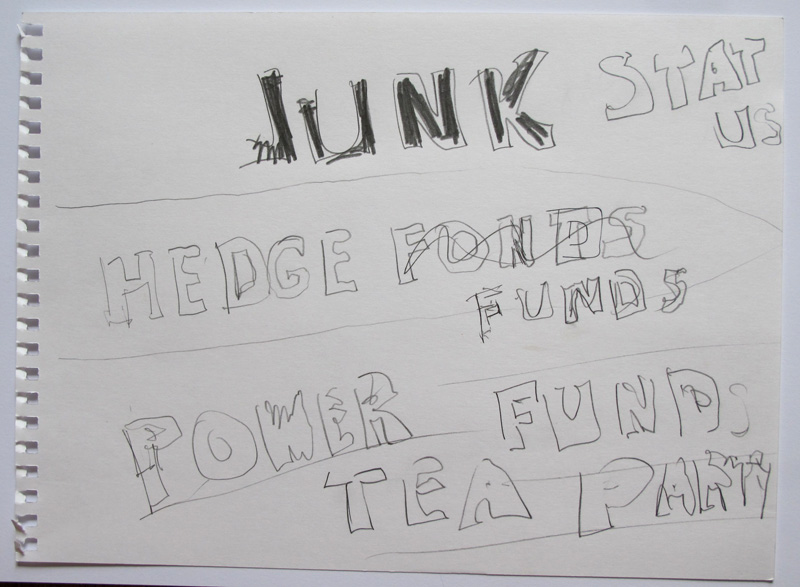 JUNK STAT
US
HEDGE FONDS
FUNDS
POWER FUNDS
TEA PARTY